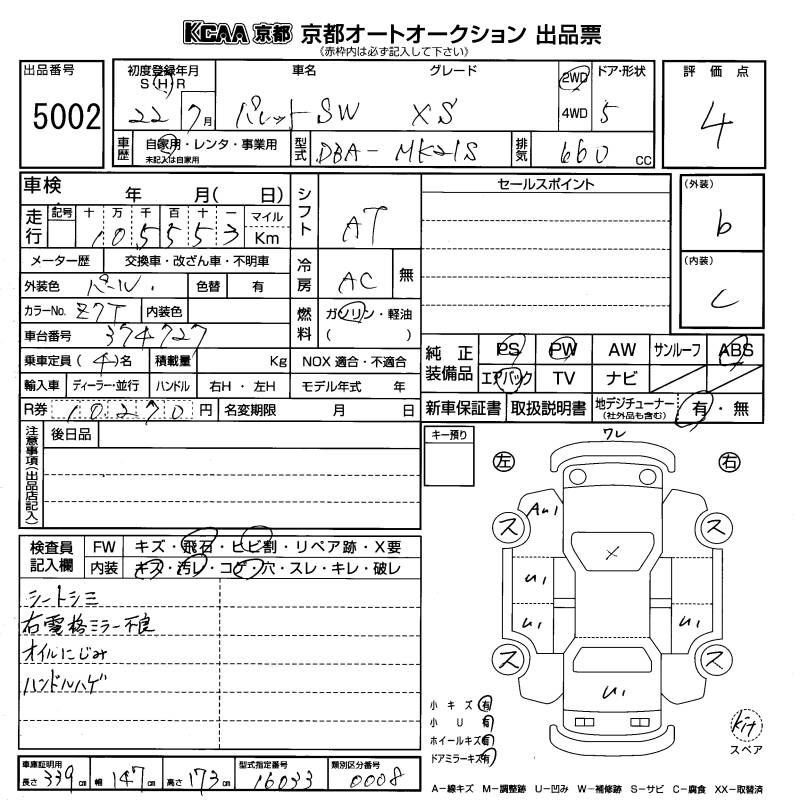 KCAA 京都 京都オートオークション 出品票
《赤枠内は必ず記入して下さい》
出品番号 5002
初度登録年月 S H R 22 7月
車名 パレットSW
グレード XS
2WD 4WD
ドア・形状 5
評価点 4
車歴 自家用・レンタ・事業用
未記入は自家用
型式 DBA- MK21S
排気 660 CC
車検 年 月( 日)
走行 記号 十 万 千 百 十 一 マイル Km
105553
シフト AT
メーター歴 交換車・改ざん車・不明車
冷房 AC 無
外装色 パール 色替 有
カラーNo. Z7T 内装色
燃料 ガソリン・軽油 ( )
車台番号 374727
乗車定員 (4)名 積載量 Kg NOX 適合・不適合
輸入車 ディーラー・並行 ハンドル 右H・左H モデル年式 年
R券 10270円 名変期限 月 日
セールスポイント
(外装) b
(内装) c
純正装備品 PS PW AW サンルーフ ABS
エアバック TV ナビ
新車保証書 取扱説明書 地デジチューナー (社外品も含む) 有・無
注意事項(出品店記入) 後日品
キー預り
ワレ
左 右
AU1
ス ス
X
U1
U1 U1
ス ス
U1
検査員記入欄 FW キズ・飛石・ヒビ割・リペア跡・X要
内装 キズ・汚レ・コゲ・穴・スレ・キレ・破レ
シートシミ
右電格ミラー不良
オイルにじみ
ハンドルハゲ
小キズ有
小U有
ホイールキズ有
ドアミラーキズ有
Kit
スペア
車庫証明用 長さ 339cm 幅 147cm 高さ 173cm 型式指定番号 16033 類別区分番号 0008
A−線キズ M−調整跡 U−凹み W−補修跡 S−サビ C−腐食 XX−取替済